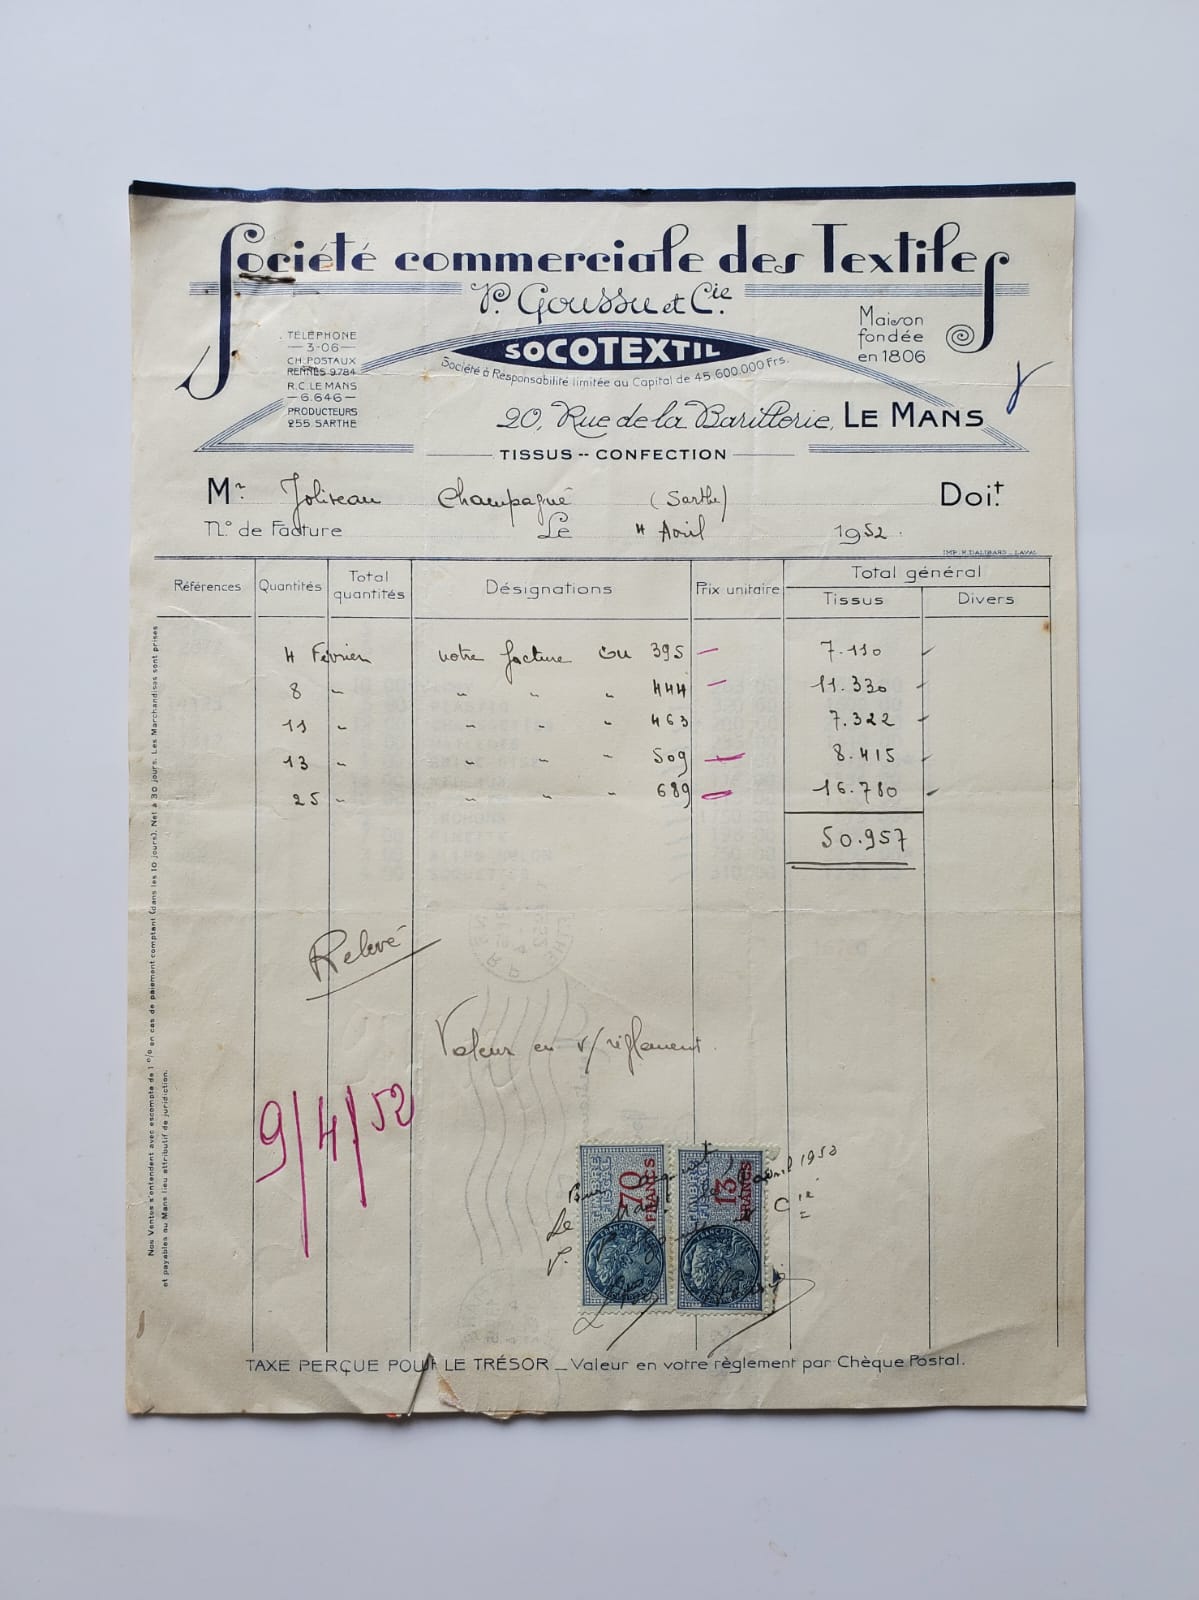 Société commerciale des Textiles
P. Goussu et Cie.
SOCOTEXTIL
Société à Responsabilité limitée au Capital de 45.600.000 Frs.
TÉLÉPHONE
— 3-06 —
CH. POSTAUX
RENNES 9784
R.C. LE MANS
— 6.646 —
PRODUCTEURS
255 SARTHE
Maison
fondée
en 1806
20, Rue de la Barillerie, LE MANS
TISSUS -- CONFECTION
Mr. Joliveau Champagné (Sarthe) Doit
No. de Facture Le 4 Avril 1952.
IMP. R. DALIBARD _ LAVAL
Références Quantités Total quantités Désignations Prix unitaire Total général
Tissus Divers
4 Février notre facture 395 — 7.110
8 " " " " 444 — 11.330
11 " " " " 463 7.322
13 " " " " 509 — 8.415
25 " " " " 689 — 16.780
50.957
Relevé
Valeur en v/règlement.
9/4/52
TIMBRE FISCAL 70 FRANCS
TIMBRE FISCAL 13 FRANCS
Pour acquit
avril 1952
Le
P. Cie
Nos Ventes s'entendent avec escompte de 1 % en cas de paiement comptant (dans les 10 jours). Net à 30 jours. Les Marchandises sont prises
et payables au Mans lieu attributif de juridiction.
TAXE PERÇUE POUR LE TRÉSOR _ Valeur en votre règlement par Chèque Postal.